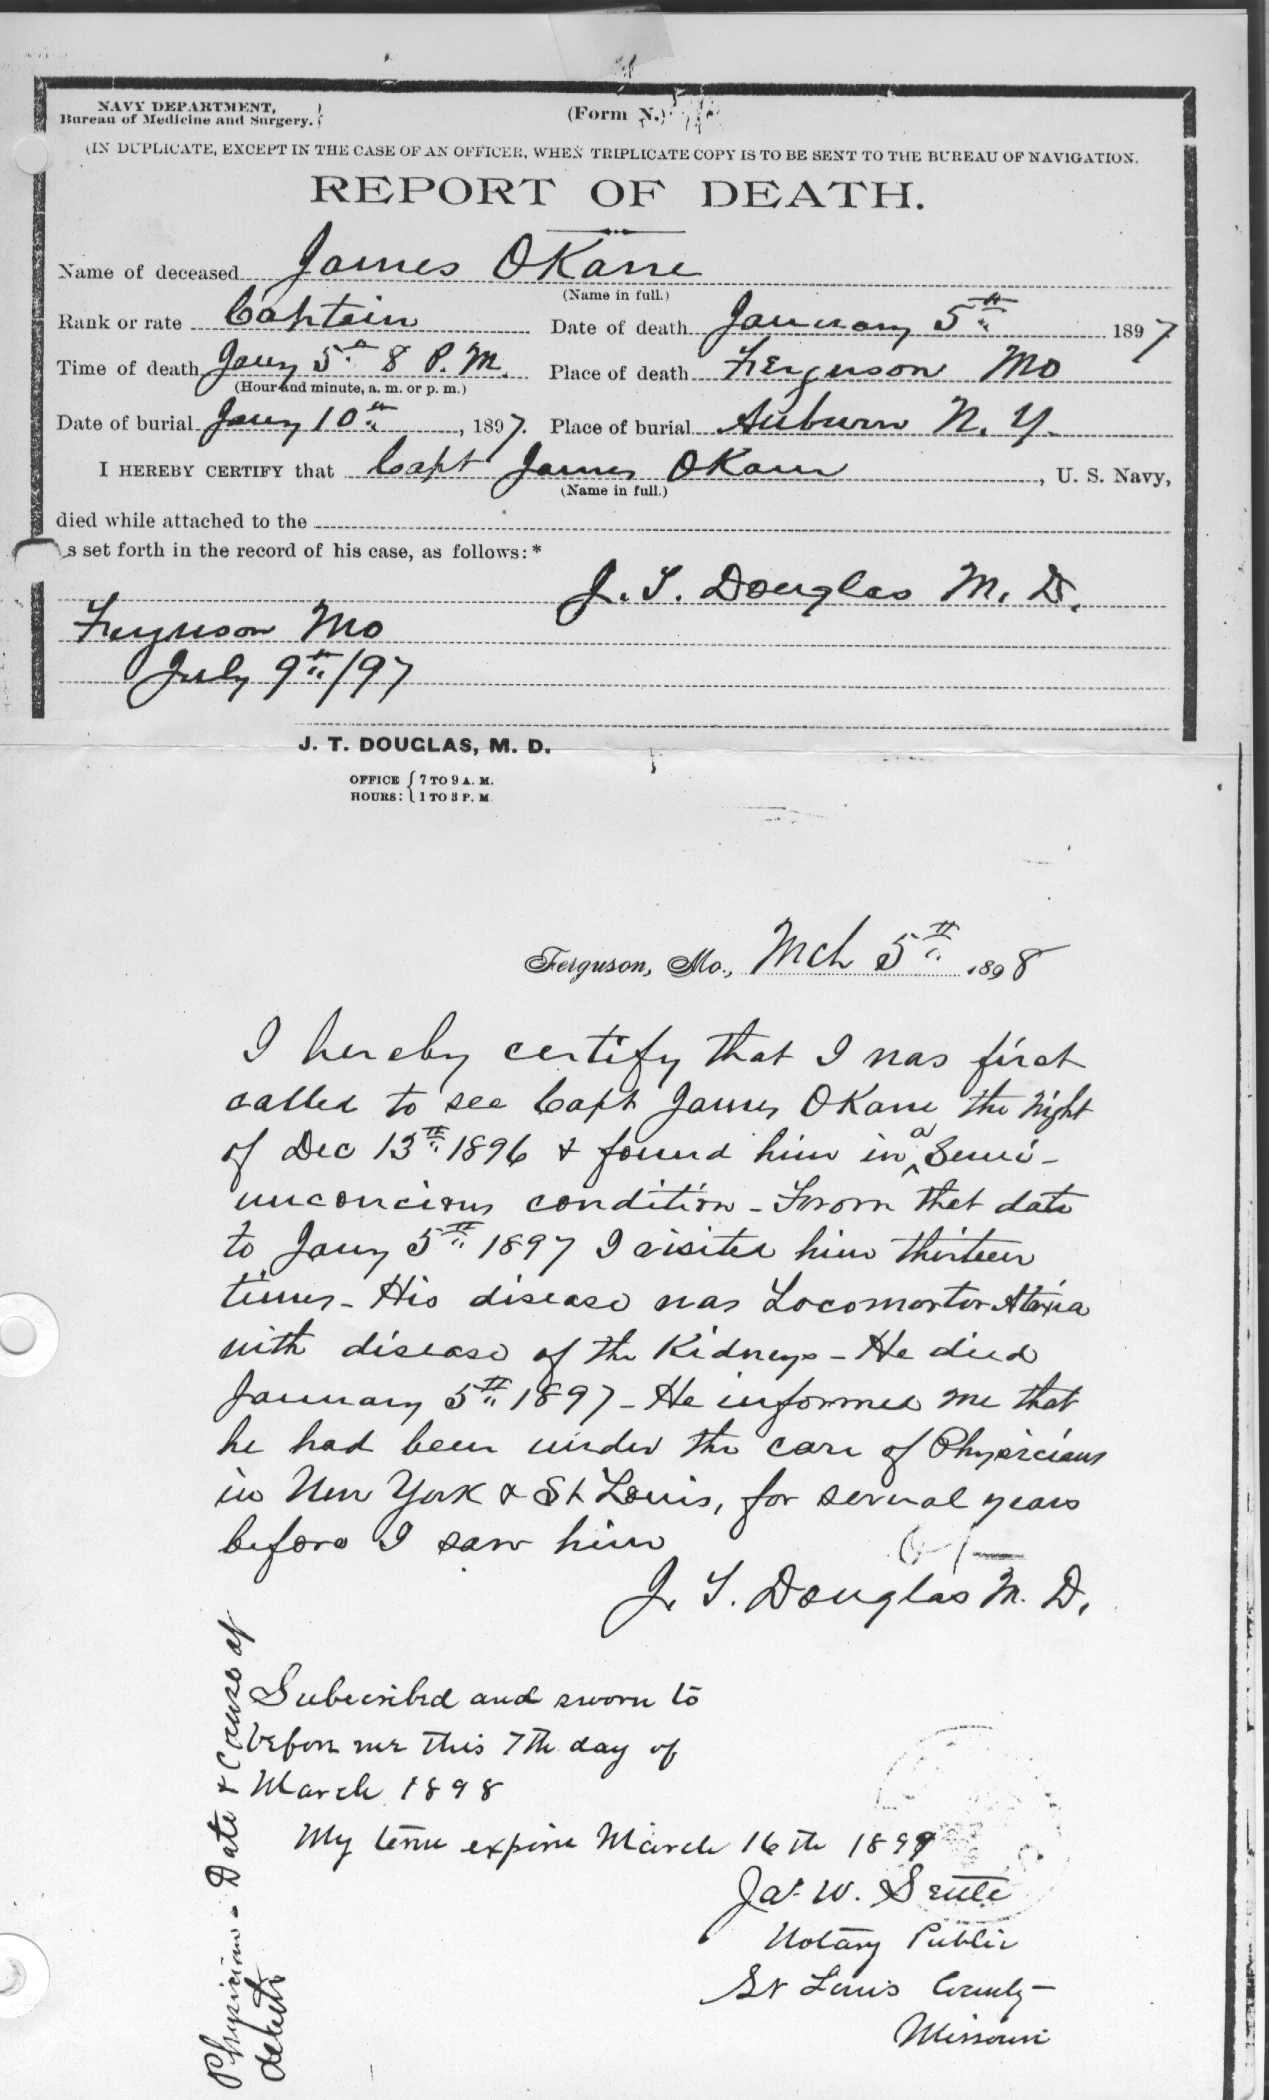 NAVY DEPARTMENT,
Bureau of Medicine and Surgery.
(Form N.)
(IN DUPLICATE, EXCEPT IN THE CASE OF AN OFFICER, WHEN TRIPLICATE COPY IS TO BE SENT TO THE BUREAU OF NAVIGATION.
REPORT OF DEATH.
Name of deceased James OKane
(Name in full.)
Rank or rate Captain Date of death January 5th 1897
Time of death Jany 5th 8 P.M. Place of death Ferguson Mo
(Hour and minute, a. m. or p. m.)
Date of burial Jany 10th, 1897. Place of burial Auburn N. Y.
I HEREBY CERTIFY that Capt James OKane, U. S. Navy,
(Name in full.)
died while attached to the
s set forth in the record of his case, as follows:*
J. T. Douglas M. D.
Ferguson Mo
July 9th/97
J. T. DOUGLAS, M. D.
OFFICE HOURS: { 7 TO 9 A. M.
1 TO 3 P. M.
Ferguson, Mo., Mch 5th 1898
I hereby certify that I was first
called to see Capt James OKane the night
of Dec 13th 1896 & found him in a Semi-
unconcious condition - From that date
to Jany 5th 1897 I visited him thirteen
times - His disease was Locomortor Ataxia
with disease of the Kidneys - He died
January 5th 1897 - He informed me that
he had been under the care of Physicians
in New York & St Louis, for several years
before I saw him
J. T. Douglas M. D.
Subscribed and sworn to
before me this 7th day of
March 1898
My term expire March 16th 1899
Jas. W.
Notary Public
St Louis County
Missouri
Physician - Date & Cause of
death